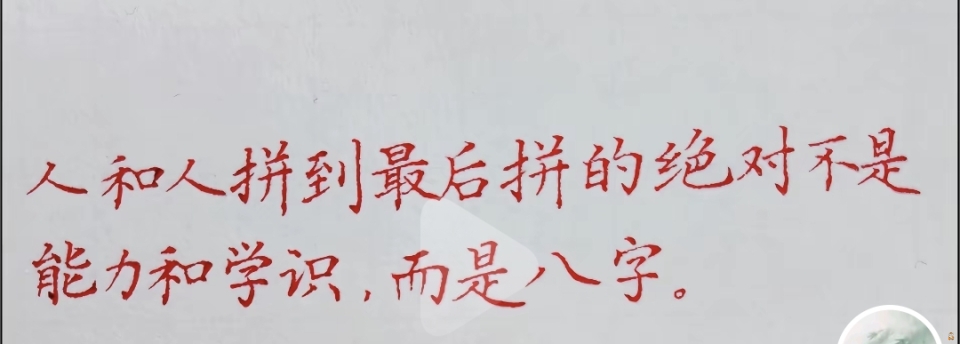 人和人拼到最后拼的绝对不是
能力和学识,而是八字。